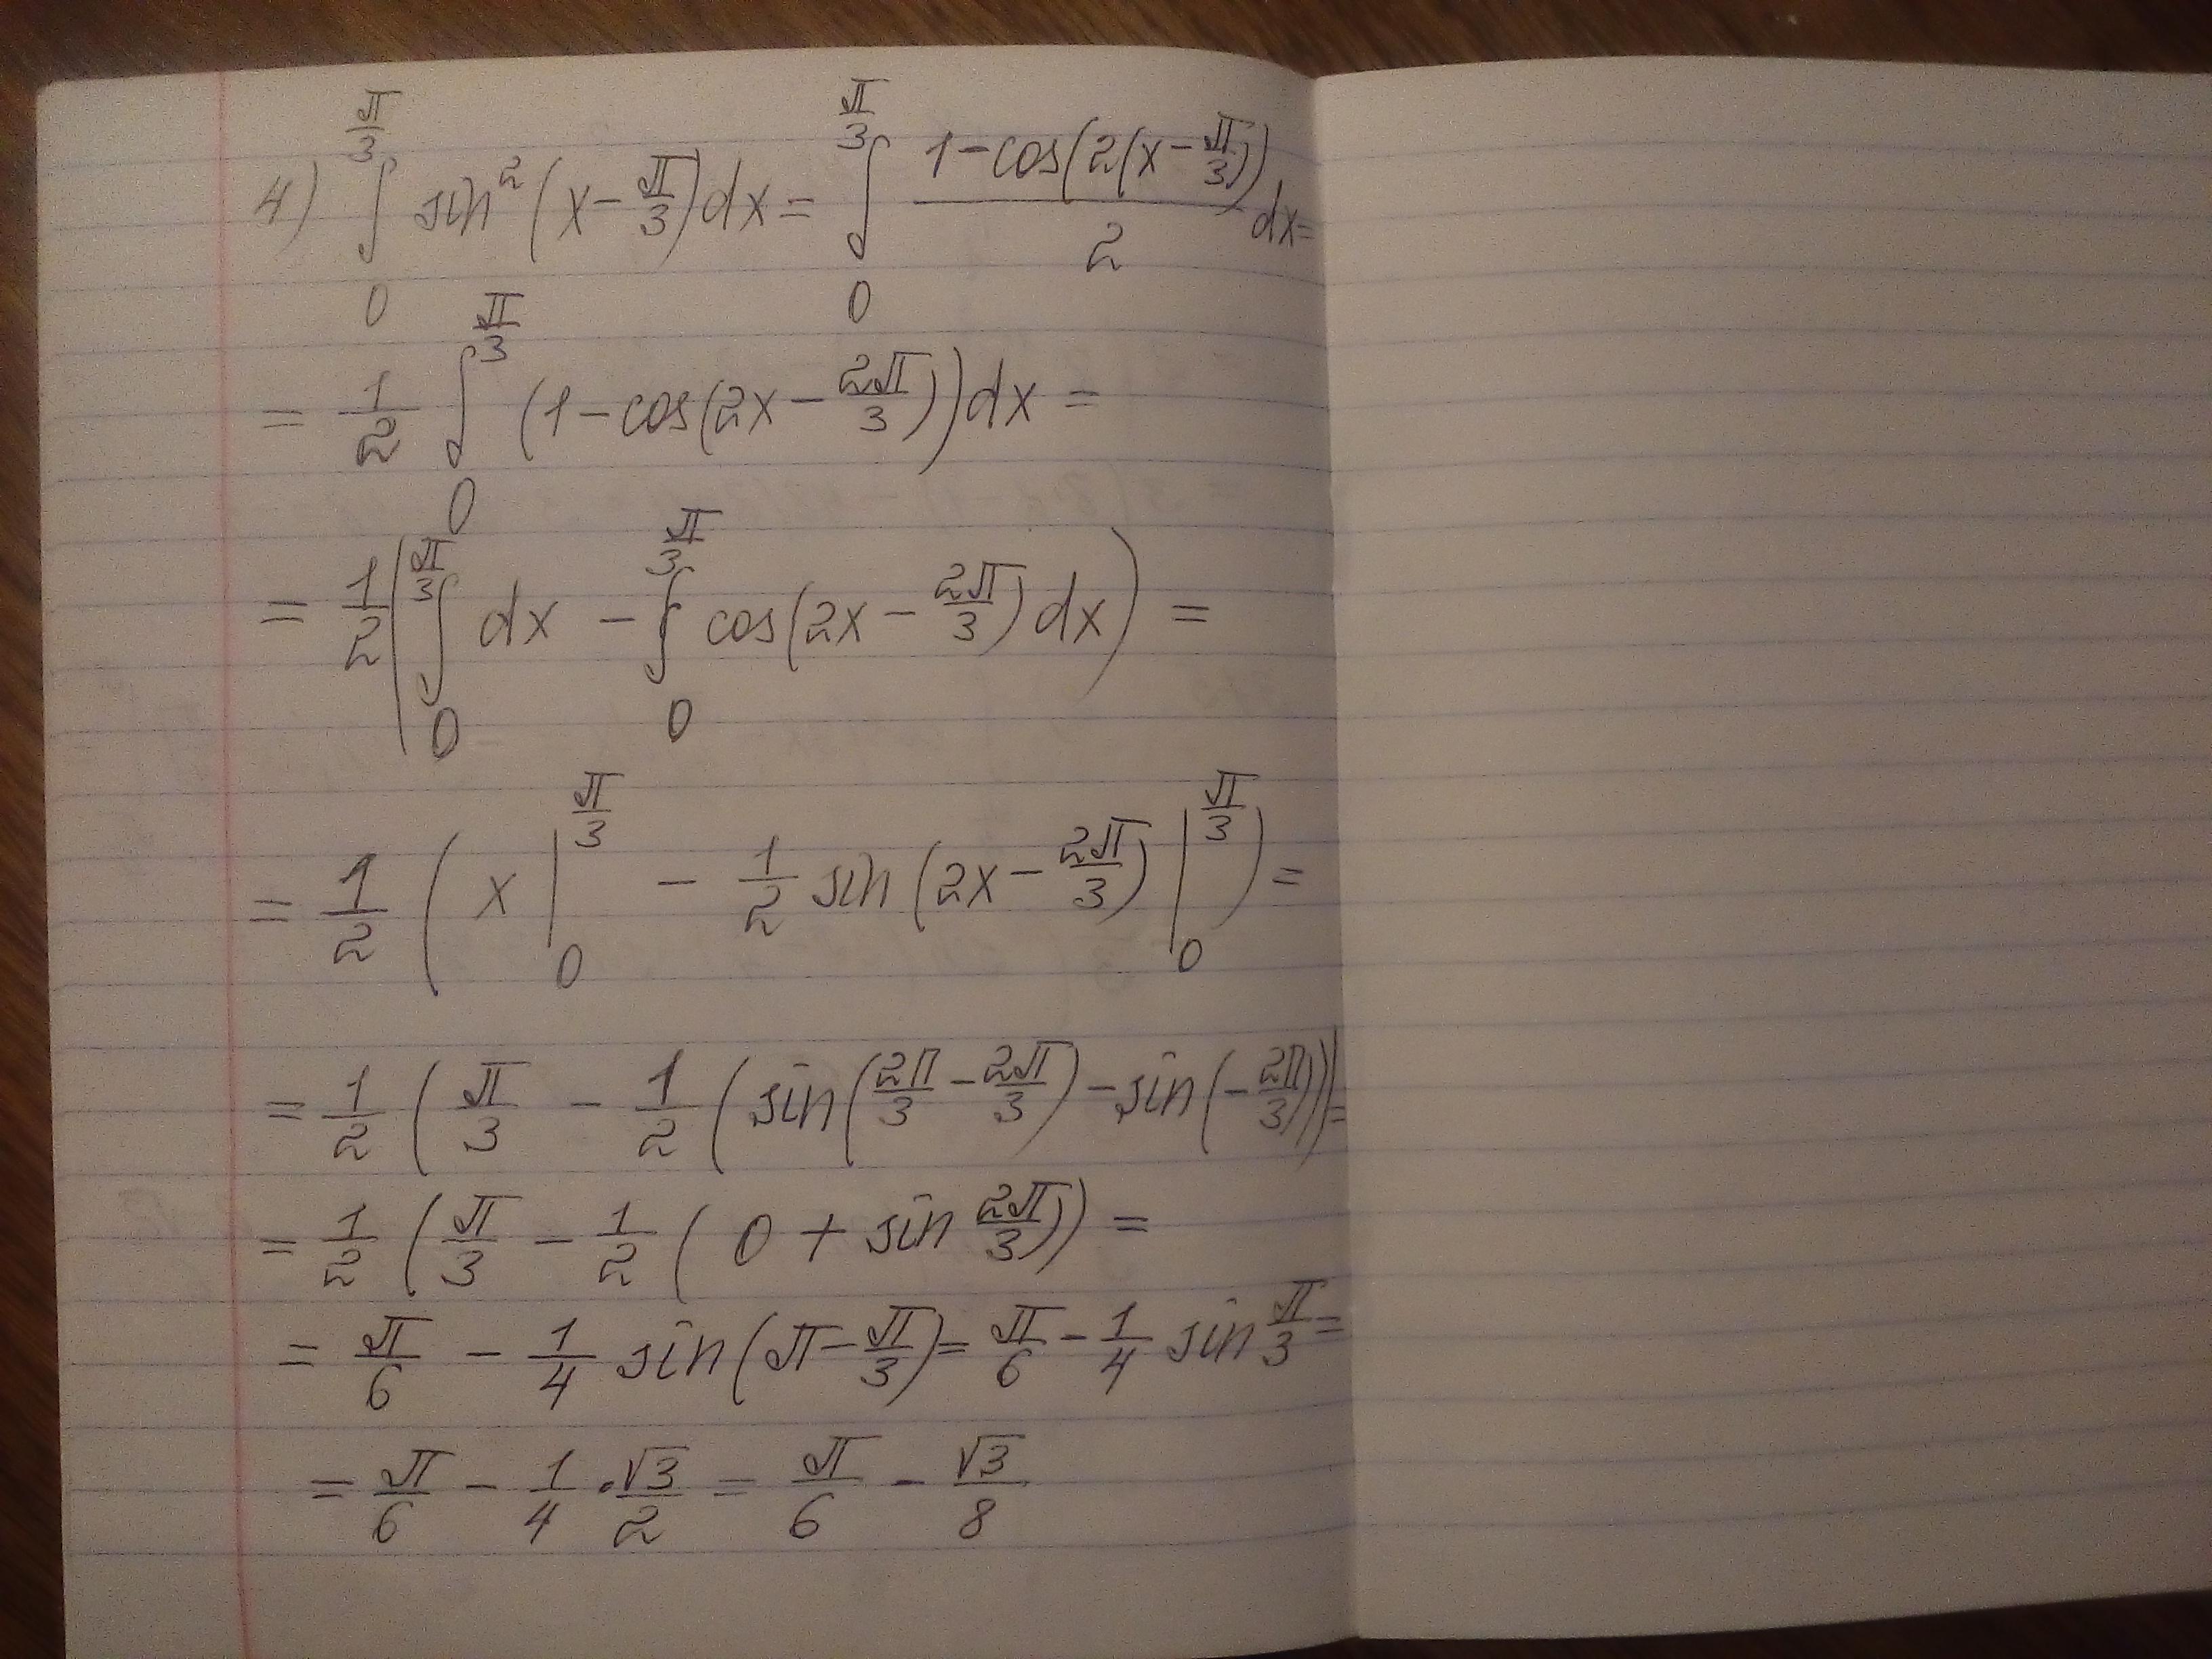 4) ∫₀^{π/3} sin²(x − π/3)dx = ∫₀^{π/3} (1 − cos(2(x − π/3)))/2 dx =
= 1/2 ∫₀^{π/3} (1 − cos(2x − 2π/3))dx =
= 1/2 (∫₀^{π/3} dx − ∫₀^{π/3} cos(2x − 2π/3)dx) =
= 1/2 (x |₀^{π/3} − 1/2 sin(2x − 2π/3) |₀^{π/3}) =
= 1/2 (π/3 − 1/2 (sin(2π/3 − 2π/3) − sin(−2π/3))) =
= 1/2 (π/3 − 1/2 (0 + sin 2π/3)) =
= π/6 − 1/4 sin(π − π/3) = π/6 − 1/4 sin π/3 =
= π/6 − 1/4 · √3/2 = π/6 − √3/8